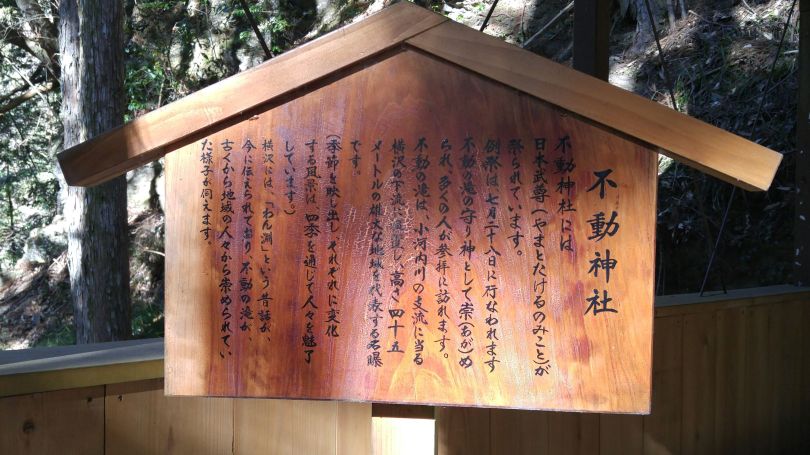 不動神社
不動神社には
日本武尊(やまとたけるのみこと)が
祭られています。
例祭は七月二十八日に行なわれます
不動の滝の守り神として崇(あが)め
られ、多くの人が参拝に訪れます。
不動の滝は、小河内川の支流に当る
横沢の下流に位置し、高さ四十五
メートルの雄大な地域を代表する名曝
です。
(季節を映し出し それぞれに変化
する風景は、四季を通じて人々を魅了
しています。)
横沢には、「わん淵」という昔話が、
今に伝えられており、不動の滝が、
古くから地域の人々から崇められてい
た様子が伺えます。